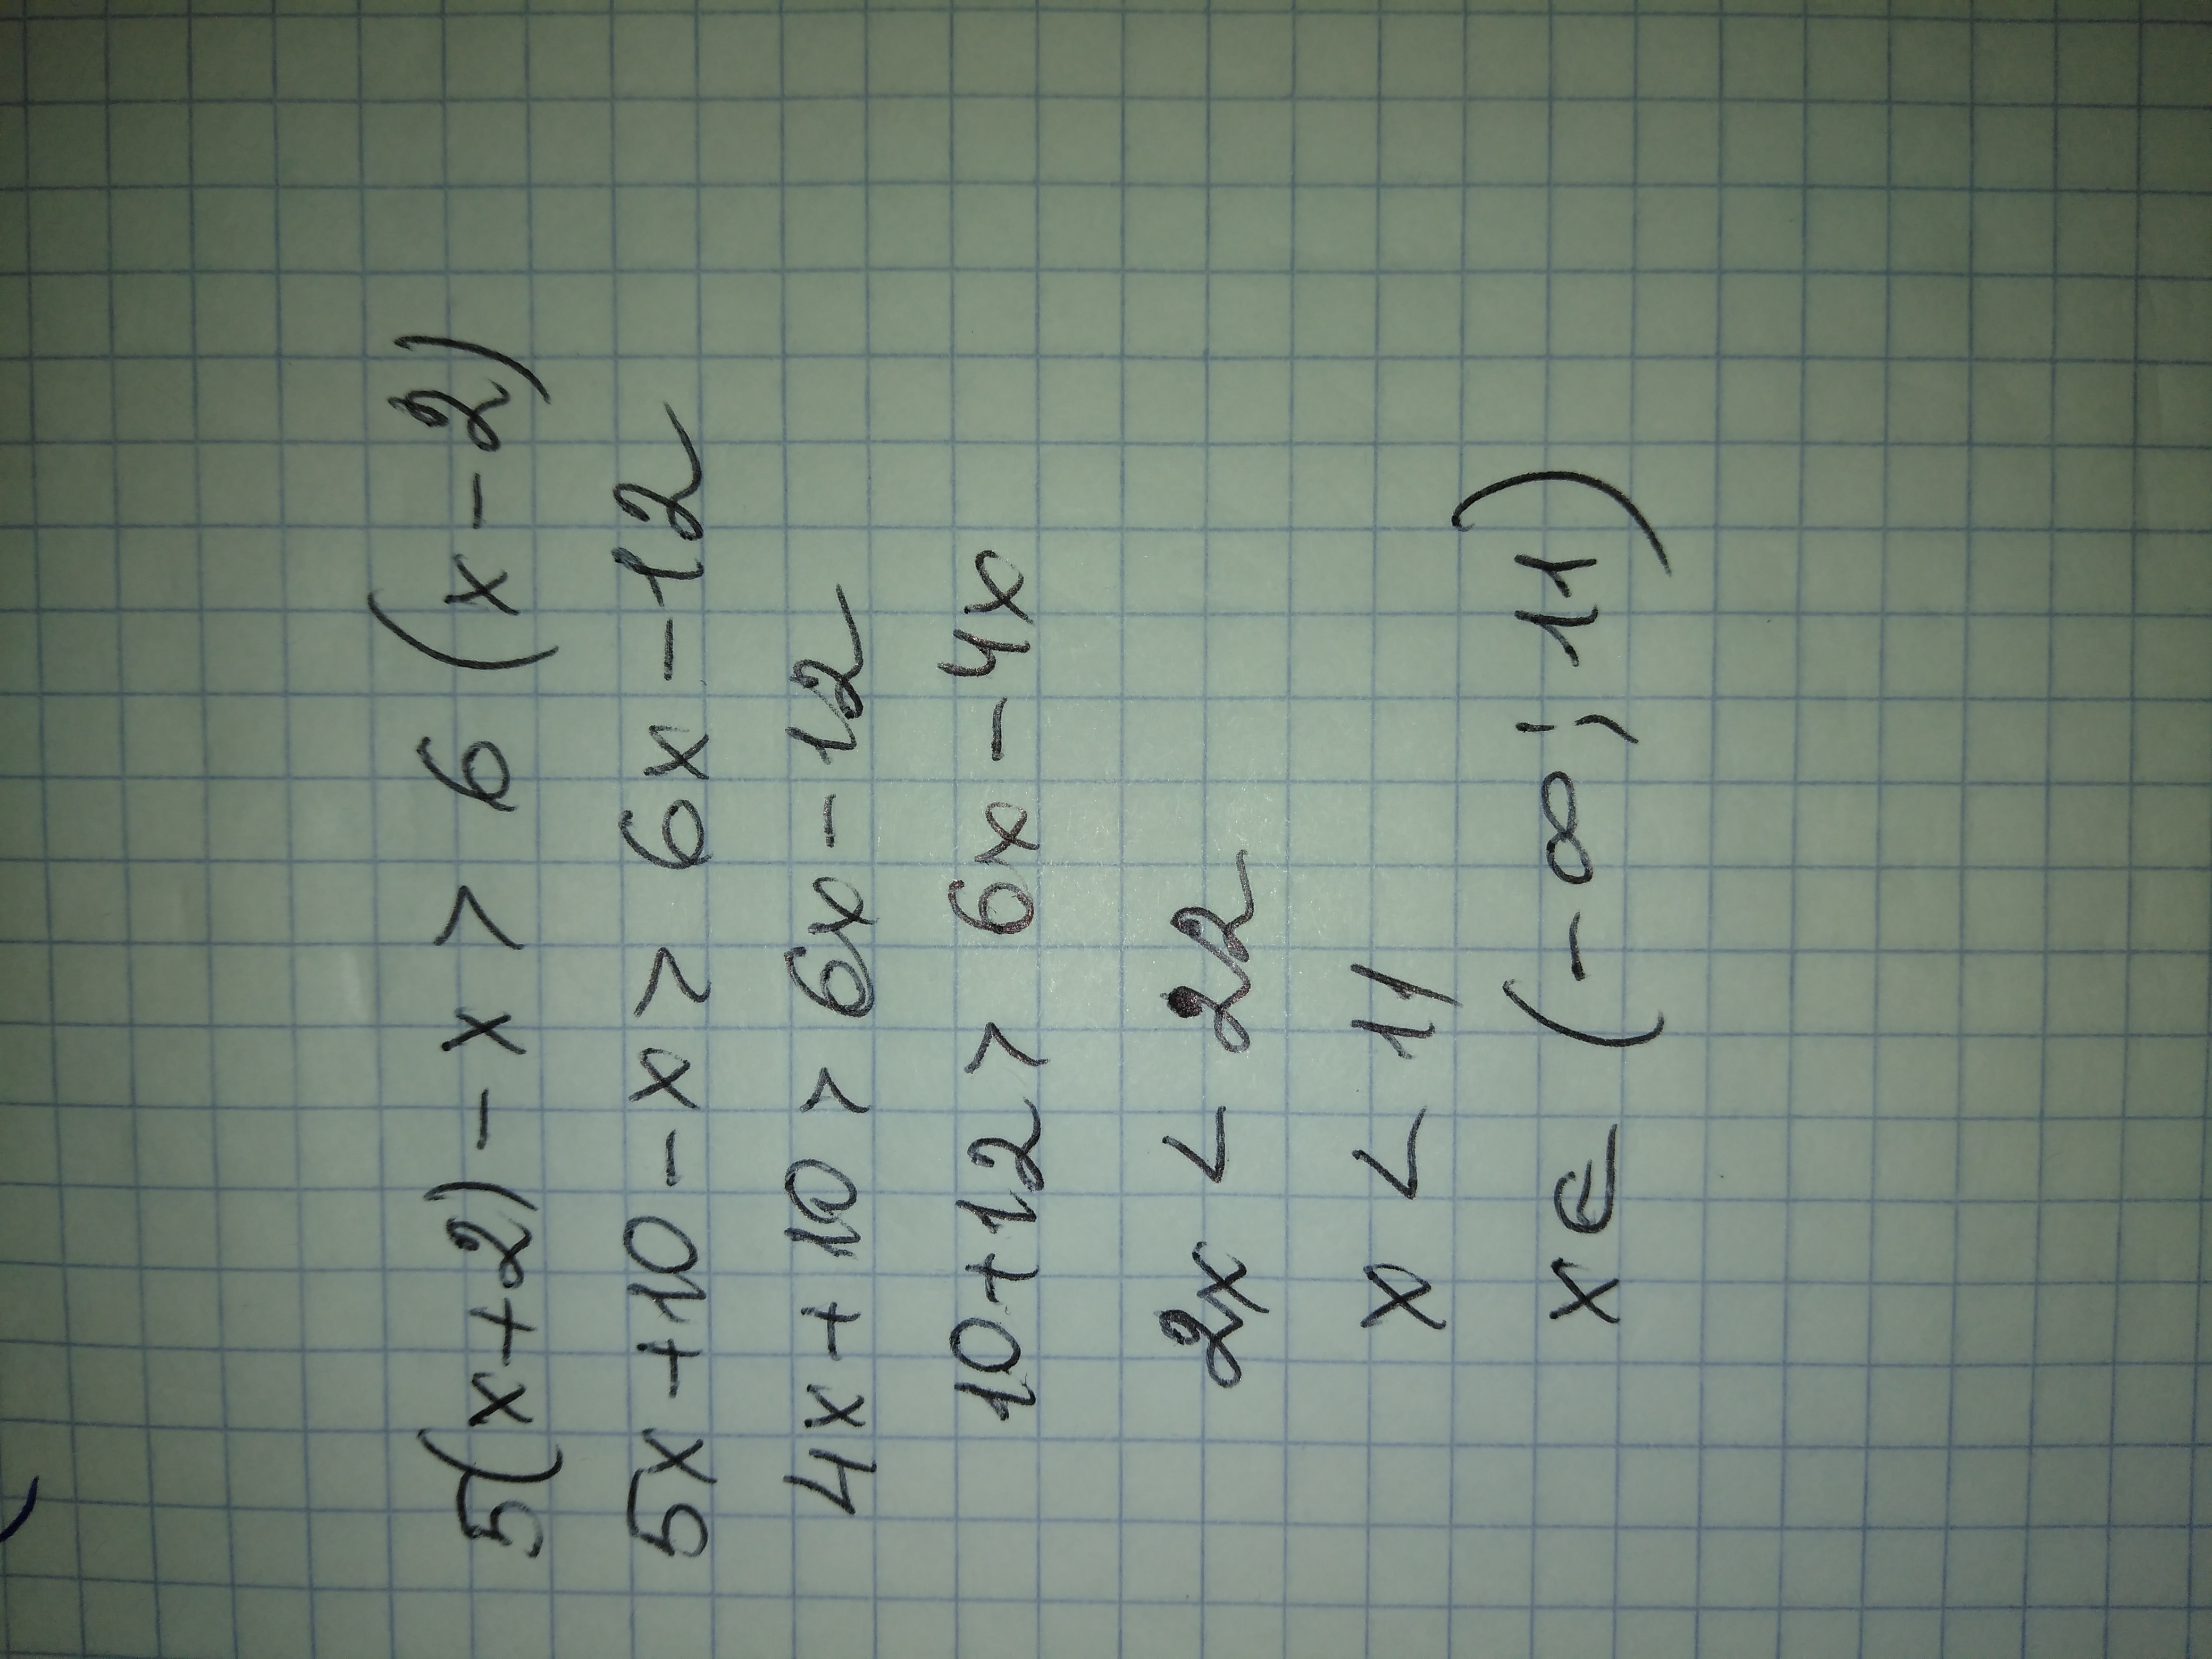 5(x+2)-x > 6(x-2)
5x+10-x > 6x-12
4x+10 > 6x-12
10+12 > 6x-4x
2x < 22
x < 11
x ∈ (-∞; 11)